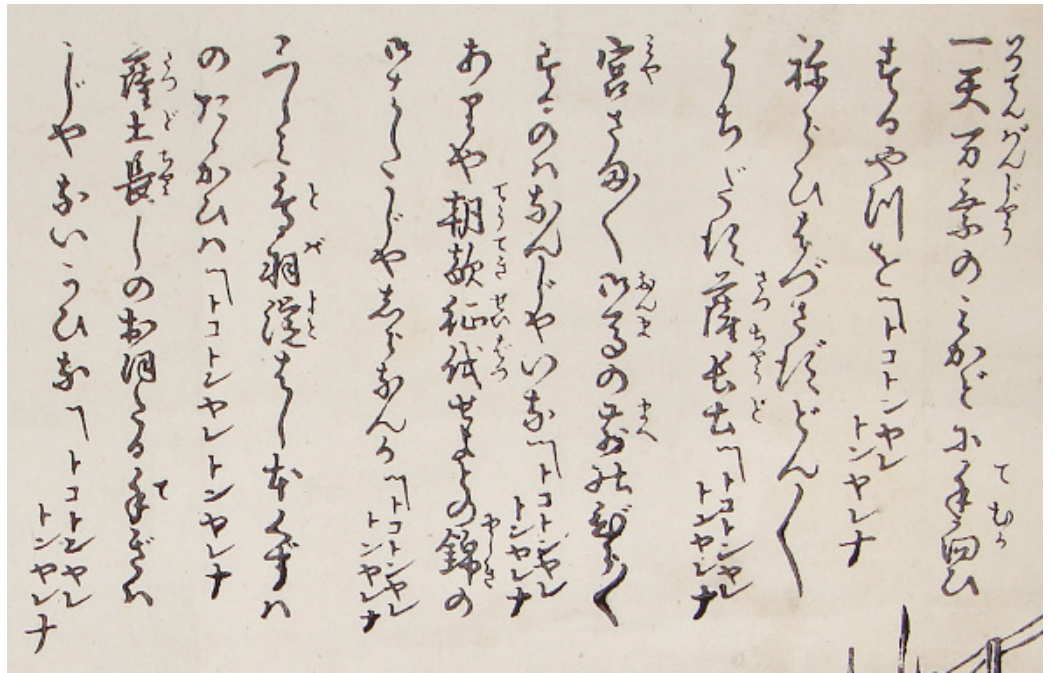 一天万乗のみかどに手向ひ
するやつを「トコトンヤレトンヤレナ
ねらひはづさずどん〱
うちだす薩長土「トコトンヤレトンヤレナ
宮さま〱御馬の前のびら〱
するのハなんじやいな「トコトンヤレトンヤレナ
ありや朝敵征伐せよとの錦の
御はたじやしらなんか「トコトンヤレトンヤレナ
ふしみ鳥羽淀はし本くずハ
のたゝかひハ「トコトンヤレトンヤレナ
薩土長しのたる手ぎハ
じやないかいな「トコトンヤレトンヤレナ